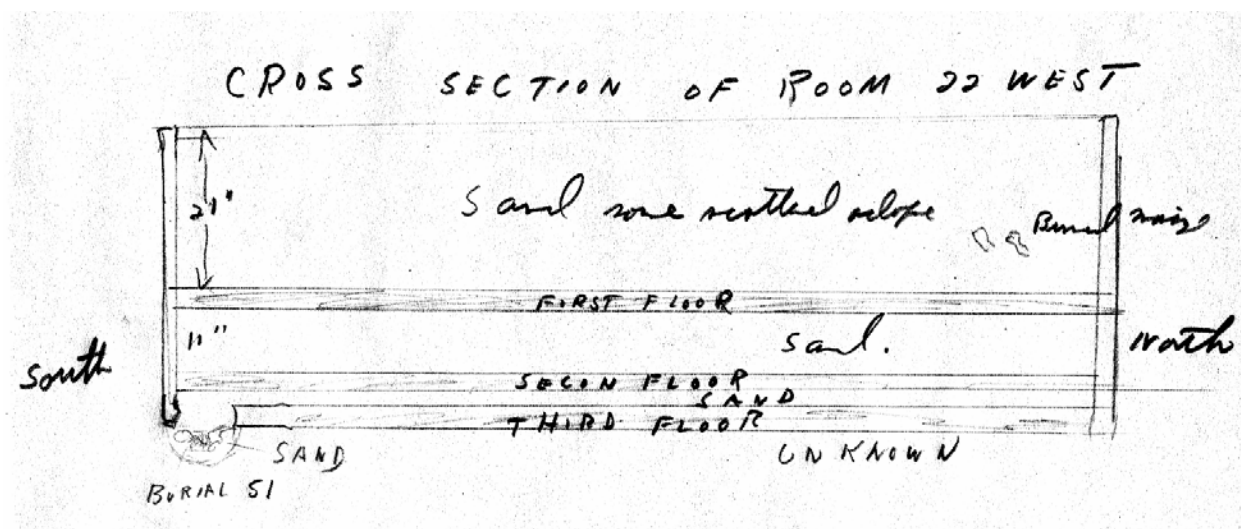 CROSS SECTION OF ROOM 22 WEST
21"
Sand some slope
FIRST FLOOR
11"
Sand.
South
North
SECON FLOOR
SAND
THIRD FLOOR
SAND
UNKNOWN
BURIAL 51